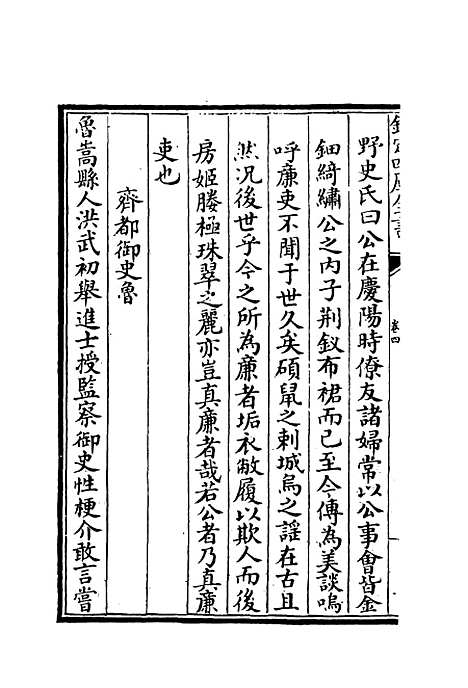 欽定四庫全書
卷四
野史氏曰公在慶陽時僚友諸婦常以公事會皆金
鈿綺繡公之内子荆釵布裙而已至今傳為美談嗚
呼廉吏不聞于世久矣碩鼠之刺城烏之謡在古且
然况後世乎今之所為廉者垢衣敝履以欺人而後
房姬媵極珠翠之麗亦豈真廉者哉若公者乃真廉
吏也
齊都御史魯
魯嵩縣人洪武初舉進士授監察御史性梗介敢言嘗